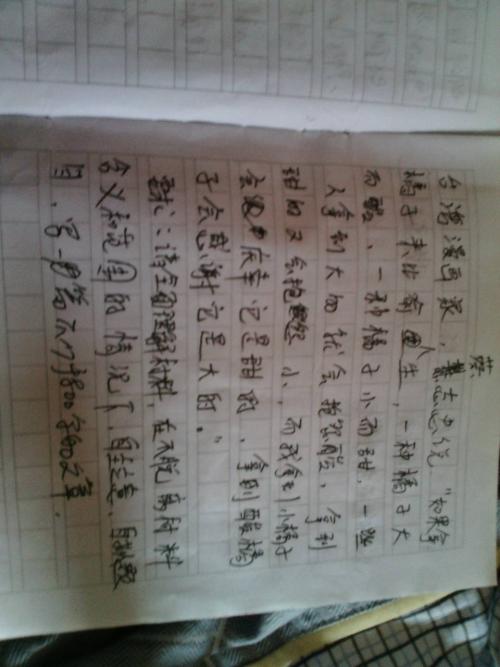 蔡
台湾漫画家,蔡志忠说"如果拿
橘子来比喻人生,一种橘子大
而酸,一种橘子小而甜,一些
人拿到大的就会抱怨酸,拿到
甜的又会抱怨小,而我拿到小橘子
会庆幸它是甜的,拿到酸橘
子会感谢它是大的。"
要求:请全面理解材料,在不脱离材料
含义和范围的情况下自主立意、自拟题
目,写一篇不少于800字的文章.